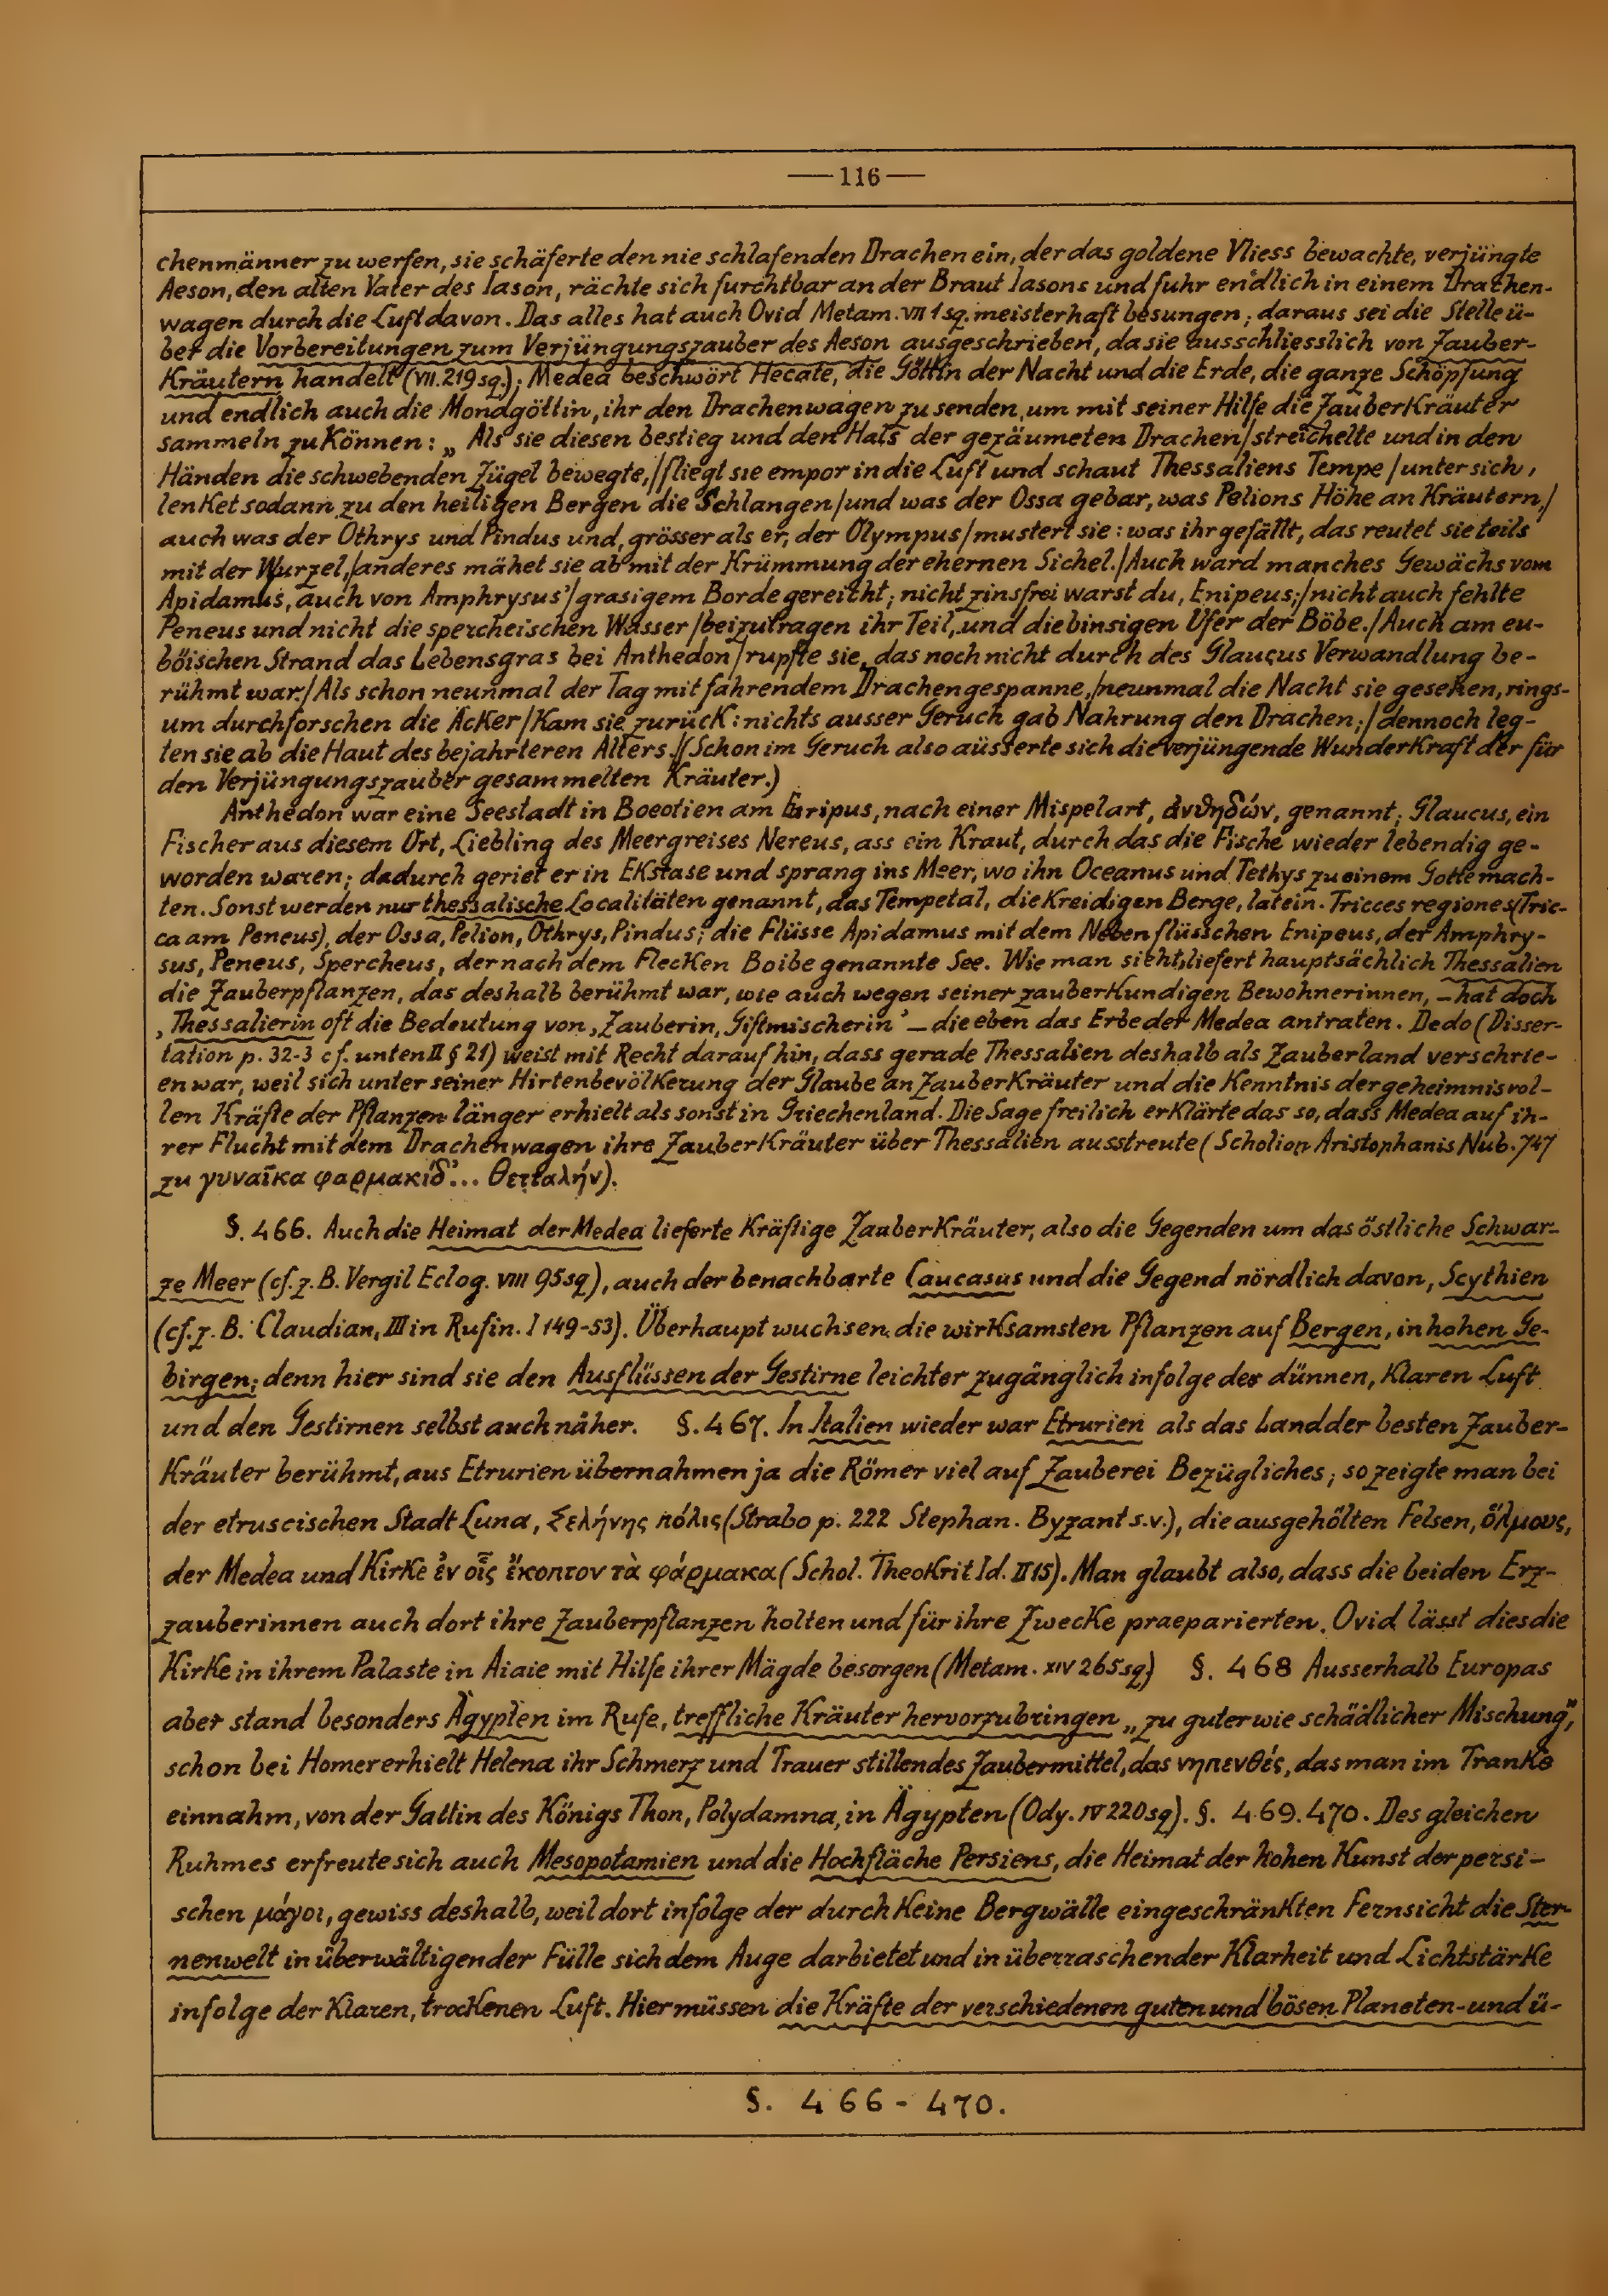 —116—
chenmänner zu werfen, sie schäferte den nie schlafenden Drachen ein, der das goldene Vliess bewachte, verjüngte
Aeson, den alten Vater des Iason, rächte sich furchtbar an der Braut Iasons und fuhr endlich in einem Drachen-
wagen durch die Luft davon. Das alles hat auch Ovid Metam. VII 1 sq. meisterhaft besungen; daraus sei die Stelle ü-
ber die Vorbereitungen zum Verjüngungszauber des Aeson ausgeschrieben, da sie ausschliesslich von Zauber-
Kräutern handelt (VII. 219 sq.); Medea beschwört Hecate, die Göttin der Nacht und die Erde, die ganze Schöpfung
und endlich auch die Mondgöttin, ihr den Drachenwagen zu senden, um mit seiner Hilfe die Zauberkräuter
sammeln zu können: „Als sie diesen bestieg und den Hals der gezäumeten Drachen/streichelte und in den
Händen die schwebenden Zügel bewegte,//fliegt sie empor in die Luft und schaut Thessaliens Tempe/unter sich,
lenket sodann zu den heiligen Bergen die Schlangen/und was der Ossa gebar, was Pelions Höhe an Kräutern,/
auch was der Othrys und Pindus und, grösser als er, der Olympus/mustert sie: was ihr gefällt, das reutet sie teils
mit der Wurzel,/anderes mähet sie ab mit der Krümmung der ehernen Sichel./Auch ward manches Gewächs vom
Apidamus, auch von Amphrysus'/grasigem Borde gereicht; nicht zinsfrei warst du, Enipeus;/nicht auch fehlte
Peneus und nicht die spercheischen Wasser/beizutragen ihr Teil, und die binsigen Ufer der Böbe./Auch am eu-
böischen Strand das Lebensgras bei Anthedon/rupfte sie, das noch nicht durch des Glaucus Verwandlung be-
rühmt war./Als schon neunmal der Tag mit fahrendem Drachengespanne,/neunmal die Nacht sie gesehen, rings-
um durchforschen die Äcker/Kam sie zurück: nichts ausser Geruch gab Nahrung den Drachen;/dennoch leg-
ten sie ab die Haut des bejahrteren Alters.//(Schon im Geruch also äusserte sich die verjüngende Wunderkraft der für
den Verjüngungszauber gesammelten Kräuter.)
Anthedon war eine Seestadt in Boeotien am Euripus, nach einer Mispelart, ἀνθηδών, genannt; Glaucus, ein
Fischer aus diesem Ort, Liebling des Meergreises Nereus, ass ein Kraut, durch das die Fische wieder lebendig ge-
worden waren; dadurch geriet er in Ekstase und sprang ins Meer, wo ihn Oceanus und Tethys zu einem Gotte mach-
ten. Sonst werden nur thessalische Localitäten genannt, das Tempetal, die Kreidigen Berge, latein. Tricces regiones (Tric-
ca am Peneus), der Ossa, Pelion, Othrys, Pindus; die Flüsse Apidamus mit dem Nebenflüsschen Enipeus, der Amphry-
sus, Peneus, Spercheus, der nach dem Flecken Boibe genannte See. Wie man sieht, liefert hauptsächlich Thessalien
die Zauberpflanzen, das deshalb berühmt war, wie auch wegen seiner zauberkundigen Bewohnerinnen, – hat doch
‚Thessalierin oft die Bedeutung von ‚Zauberin, Giftmischerin' – die eben das Erbe der Medea antraten. Dedo (Disser-
tation p. 32-3 cf. unten II § 21) weist mit Recht darauf hin, dass gerade Thessalien deshalb als Zauberland verschrie-
en war, weil sich unter seiner Hirtenbevölkerung der Glaube an Zauberkräuter und die Kenntnis der geheimnisvol-
len Kräfte der Pflanzen länger erhielt als sonst in Griechenland. Die Sage freilich erklärte das so, dass Medea auf ih-
rer Flucht mit dem Drachenwagen ihre Zauberkräuter über Thessalien ausstreute (Scholion Aristophanis Nub. 747
zu γυναῖκα φαρμακίδ'... Θετταλήν).
§. 466. Auch die Heimat der Medea lieferte kräftige Zauberkräuter, also die Gegenden um das östliche Schwar-
ze Meer (cf. z. B. Vergil Eclog. VIII 95 sq), auch der benachbarte Caucasus und die Gegend nördlich davon, Scythien
(cf. z. B. Claudian, III in Rufin. I 149-53). Überhaupt wuchsen die wirksamsten Pflanzen auf Bergen, in hohen Ge-
birgen; denn hier sind sie den Ausflüssen der Gestirne leichter zugänglich infolge der dünnen, klaren Luft
und den Gestirnen selbst auch näher. §. 467. In Italien wieder war Etrurien als das Land der besten Zauber-
Kräuter berühmt, aus Etrurien übernahmen ja die Römer viel auf Zauberei Bezügliches; so zeigte man bei
der etruscischen Stadt Luna, Σελήνης πόλις (Strabo p. 222 Stephan. Byzant s.v.), die ausgehölten Felsen, ὅλμους,
der Medea und Kirke ἐν οἷς ἔκοπτον τὰ φάρμακα (Schol. Theokrit Id. II 15). Man glaubt also, dass die beiden Erz-
zauberinnen auch dort ihre Zauberpflanzen holten und für ihre Zwecke praeparierten. Ovid lässt dies die
Kirke in ihrem Palaste in Aiaie mit Hilfe ihrer Mägde besorgen (Metam. XIV 265 sq) §. 468 Ausserhalb Europas
aber stand besonders Ägypten im Rufe, treffliche Kräuter hervorzubringen „zu guter wie schädlicher Mischung",
schon bei Homer erhielt Helena ihr Schmerz und Trauer stillendes Zaubermittel, das νηπενθές, das man im Tranke
einnahm, von der Gattin des Königs Thon, Polydamna, in Ägypten (Ody. IV 220 sq). §. 469. 470. Des gleichen
Ruhmes erfreute sich auch Mesopotamien und die Hochfläche Persiens, die Heimat der hohen Kunst der persi-
schen μάγοι, gewiss deshalb, weil dort infolge der durch keine Bergwälle eingeschränkten Fernsicht die Ster-
nenwelt in überwältigender Fülle sich dem Auge darbietet und in überraschender Klarheit und Lichtstärke
infolge der klaren, trockenen Luft. Hier müssen die Kräfte der verschiedenen guten und bösen Planeten- und ü-
§. 466 - 470.